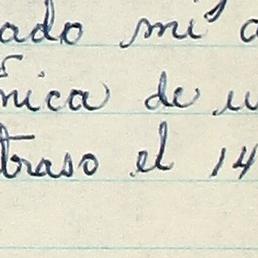 ado mi a
nica de u
traso el 14